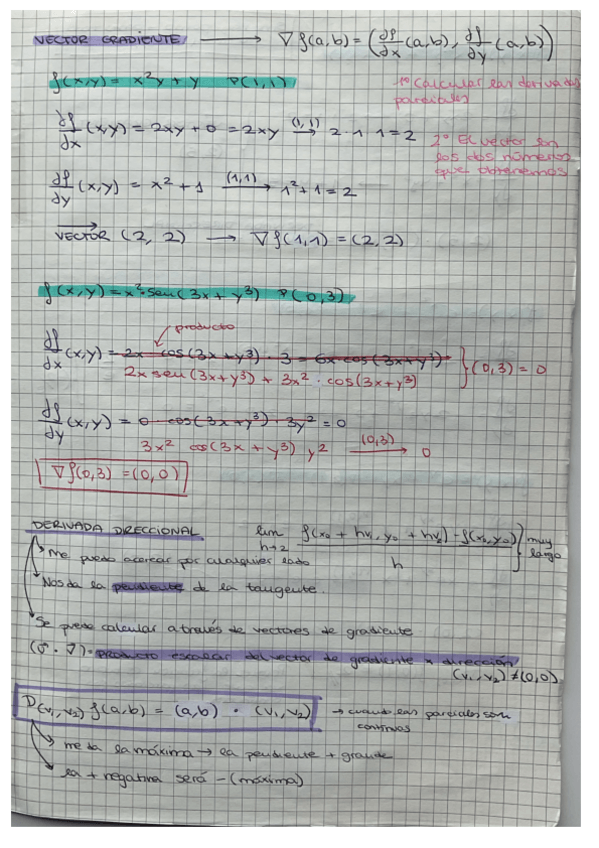 VECTOR GRADIENTE → ∇f(a,b) = (∂f/∂x (a,b), ∂f/∂y (a,b))
f(x,y) = x²y + y P(1,1)
1º Calcular las derivadas
parciales
∂f/∂x (x,y) = 2xy + 0 = 2xy (1,1)→ 2·1·1 = 2
2º El vector son
los dos números
que obtenemos
∂f/∂y (x,y) = x² + 1 (1,1)→ 1² + 1 = 2
VECTOR (2, 2) → ∇f(1,1) = (2,2)
f(x,y) = x²·sen(3x + y³) P(0,3)
producto
∂f/∂x (x,y) = 2x cos(3x + y³) · 3 = 6x cos(3x + y³)
2x sen(3x + y³) + 3x² · cos(3x + y³) } (0,3) = 0
∂f/∂y (x,y) = 0 cos(3x + y³) · 3y² = 0
3x² cos(3x + y³) y² (0,3)→ 0
∇f(0,3) = (0,0)
DERIVADA DIRECCIONAL lim h→2 f(x₀ + hv₁, y₀ + hv₂) - f(x₀,y₀) / h } muy
largo
Me puedo acercar por cualquier lado
Nos da la pendiente de la tangente.
Se puede calcular a través de vectores de gradiente
producto escalar del vector de gradiente x dirección
(v₁, v₂) ≠ (0,0)
D(v₁,v₂) f(a,b) = (a,b) · (v₁, v₂) → cuando las parciales son
continuas
me da la máxima → la pendiente + grande
la + negativa será - (máxima)